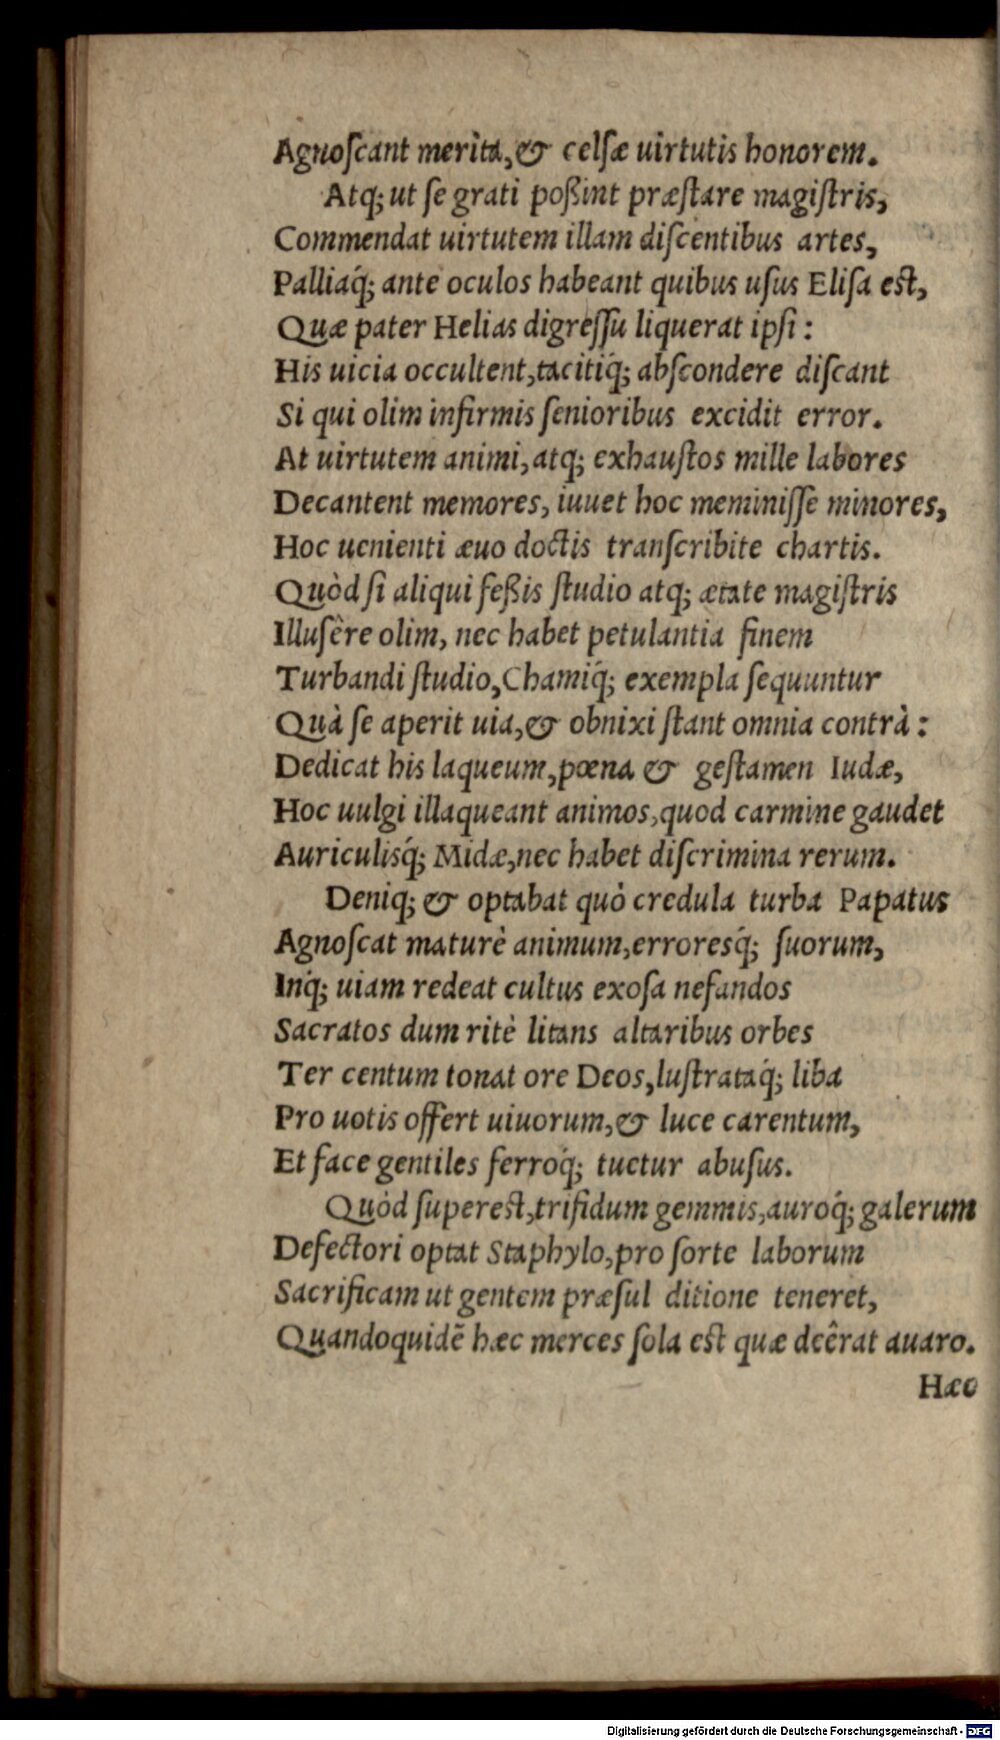 Agnoſcant merìta, & celſæ uirtutis honorem.
Atq; ut ſe grati poßint præſtare magiſtris,
Commendat uirtutem illam diſcentibus artes,
Palliaq́; ante oculos habeant quibus uſus Eliſa est,
Quæ pater Helias digreſſu liquerat ipſi:
His uicia occultent, tacitiq́; abſcondere diſcant
Si qui olim infirmis ſenioribus excidit error.
At uirtutem animi, atq; exhauſtos mille labores
Decantent memores, iuuet hoc meminiſſe minores,
Hoc uenienti æuo doctis transſcribite chartis.
Quòd ſi aliqui feßis ſtudio atq; ætate magiſtris
Illuſêre olim, nec habet petulantia finem
Turbandi ſtudio, Chamiq́; exempla ſequuntur
Quà ſe aperit uia, & obnixi ſtant omnia contrà:
Dedicat his laqueum, pœna & geſtamen Iudæ,
Hoc uulgi illaqueant animos, quod carmine gaudet
Auriculisq́; Midæ, nec habet diſcrimina rerum.
Deniq; & optabat quò credula turba Papatus
Agnoſcat maturè animum, erroresq́; ſuorum,
Inq́; uiam redeat cultus exoſa nefandos
Sacratos dum ritè litans altaribus orbes
Ter centum tonat ore Deos, luſtrataq́; liba
Pro uotis offert uiuorum, & luce carentum,
Et face gentiles ferroq́; tuetur abuſus.
Quòd ſuperest, trifidum gemmis, auroq́; galerum
Defectori optat Staphylo, pro ſorte laborum
Sacrificam ut gentem præſul ditione teneret,
Quandoquidē hæc merces ſola est quæ deêrat auaro.
Hæc
Digitalisierung gefördert durch die Deutsche Forschungsgemeinschaft - DFG